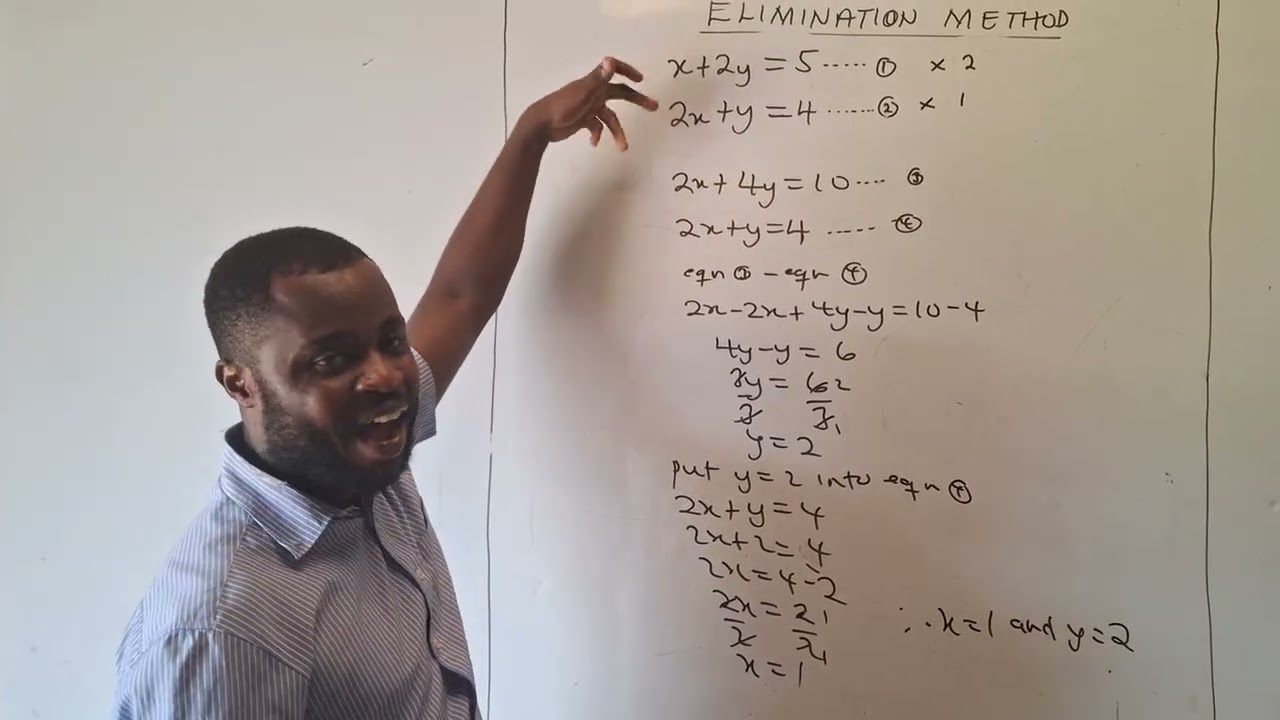 ELIMINATION METHOD
x+2y=5..... ① × 2
2x+y=4....... ② × 1
2x+4y=10.... ③
2x+y=4 ..... ④
eqn ③ - eqn ④
2x-2x+4y-y=10-4
4y-y=6
3y = 6 2
3 3 1
y=2
put y=2 into eqn ④
2x+y=4
2x+2=4
2x=4-2
2x = 2 1
2 2 1
x=1
∴ x=1 and y=2